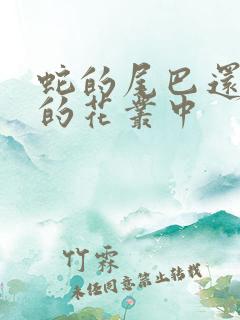 蛇的尾巴還
的花叢中
竹霖
未经同意禁止转载